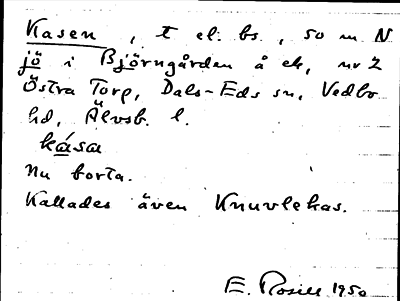 Kasen, t el. bs., 50 m N
jö i Björngården å ek, nr 2
Östra Torp, Dals-Eds sn, Vedbo
hd, Älvsb. l.
kása
Nu borta.
Kallades även Knuvlekas.
E. Rosell 1950